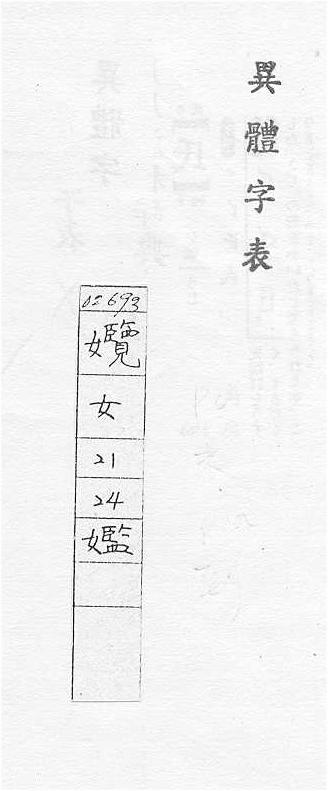 異體字表
02693
孄
女
21
24
㜮